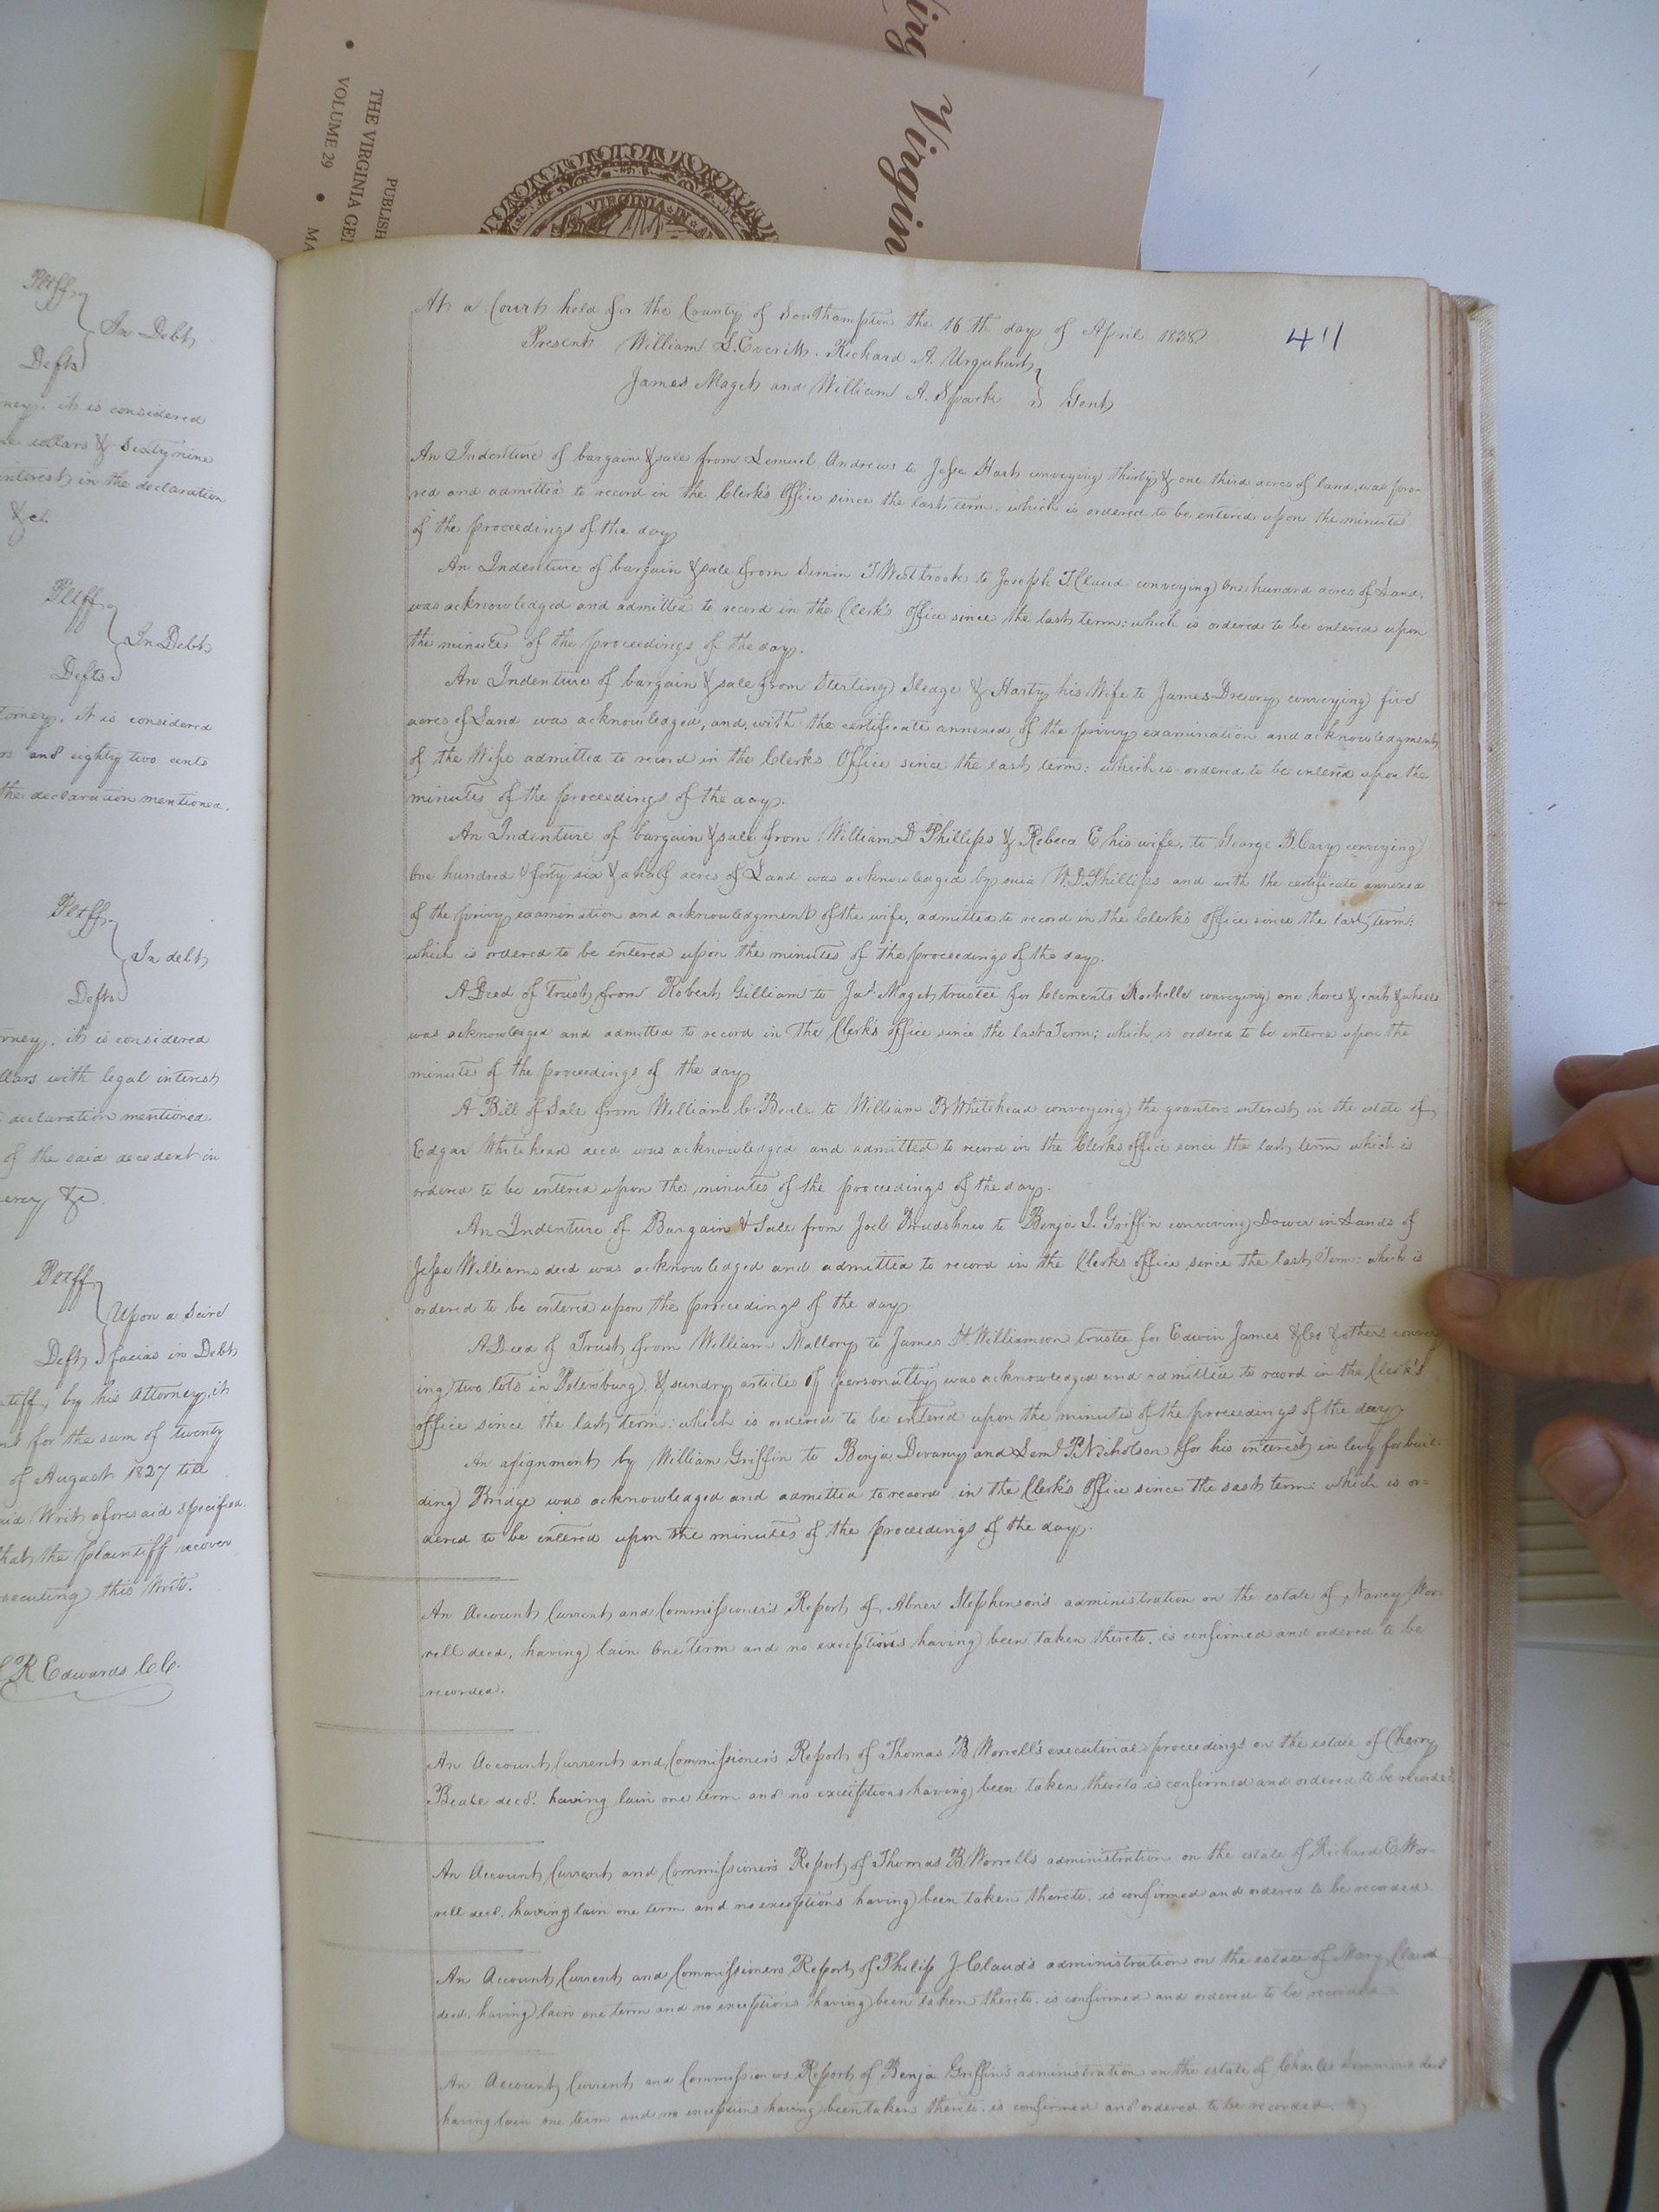 THE VIRGINIA GE
VOLUME 29 • MA
PUBLISH
VIRGINIA IN
Virgin
Pltff
In Debt
Defts
ney. it is considered
dollars & Sixty nine
interest in the declaration
&c.
Pltff
In Debt
Defts
torney, it is considered
and eighty two cents
the declaration mentioned.
Pltff
In debt
Defts
rney. it is considered
llars with legal interest
declaration mentioned.
of the said decedent in
every &c
Pltff
Upon a Scire
Deft facias in Debt
ntiff, by his Attorney, it
nt for the sum of twenty
of August 1827 till
aid Writ aforesaid specified.
that the plaintiff recover
secuting this Writ.
R Edwards C.C.
411
At a Court held for the County of Southampton the 16th day of April 1838
Present William B. Everitt. Richard A. Urquhart
James Maget and William A. Spark Gent
An Indenture of bargain & sale from Lemuel Andrews to Jesse Hart conveying thirty & one third acres of land, was pro-
ved and admitted to record in the Clerk's Office since the last term. which is ordered to be entered upon the minutes
of the proceedings of the day
An Indenture of bargain & sale from Simon T Westbrook to Joseph T. Claud conveying One hundred acres of Land,
was acknowledged and admitted to record in the Clerk's office since the last term: which is ordered to be entered upon
the minutes of the proceedings of the day.
An Indenture of bargain & sale from Sterling Sledge & Harty his Wife to James Drewry conveying five
acres of Land was acknowledged, and, with the certificate annexed of the privy examination and acknowledgment
of the Wife admitted to record in the Clerks Office since the last term: which is ordered to be entered upon the
minutes of the proceedings of the day.
An Indenture of bargain & sale from William D Phillips & Rebeca E his wife, to George B. Cary conveying
One hundred & forty six & a half acres of Land was acknowledged by said W. D. Phillips and with the certificate annexed
of the privy examination and acknowledgment of the wife, admitted to record in the Clerk's office since the last term:
which is ordered to be entered upon the minutes of the proceedings of the day.
A Deed of Trust from Robert Gilliam to Jas. Maget trustee for Clements Rochelle conveying one horse & cart & wheels
was acknowledged and admitted to record in The Clerk's office since the last Term; which is ordered to be entered upon the
minutes of the proceedings of the day
A Bill of Sale from William C. Beale to William B Whitehead conveying the grantors interest in the estate of
Edgar Whitehead decd was acknowledged and admitted to record in the Clerks office since the last term which is
ordered to be entered upon the minutes of the proceedings of the day.
An Indenture of Bargain & Sale from Joel Bradshaw to Benja J. Griffin conveying Dower in Lands of
Jesse Williams decd was acknowledged and admitted to record in the Clerks office since the last Term: which is
ordered to be entered upon the proceedings of the day.
A Deed of Trust from William Mallory to James H. Williamson trustee for Edwin James & Co & others convey
ing two lots in Petersburg & sundry articles of personalty was acknowledged and admitted to record in the Clerk's
office since the last term: which is ordered to be entered upon the minutes of the proceedings of the day
An assignment by William Griffin to Benja. Devany and Leml P. Nicholson for his interest in levy for buil-
ding Bridge was acknowledged and admitted to record in the Clerk's Office since the last term: which is or-
dered to be entered upon the minutes of the proceedings of the day.
An Account Current and Commissioner's Report of Abner Stephenson's administration on the estate of Nancy Wor-
rell decd, having lain One term and no exceptions having been taken thereto, is confirmed and ordered to be
recorded.
An Account Current and Commissioner's Report of Thomas B Worrell's executorial proceedings on the estate of Cherry
Beale decd. having lain one term and no exceptions having been taken thereto is confirmed and ordered to be recorded
An Account Current and Commissioner's Report of Thomas B Worrells administration on the estate of Richard E Wor-
rell decd. having lain one term and no exceptions having been taken thereto, is confirmed and ordered to be recorded
An Account Current and Commissioners Report of Philip J Claud's administration on the estate of Mary Claud
decd, having lain one term and no exceptions having been taken thereto. is confirmed and ordered to be recorded
An Account Current and Commissioners Report of Benja Griffin's administration on the estate of Charles Simmons decd
having lain one term and no exceptions having been taken thereto. is confirmed and ordered to be recorded.